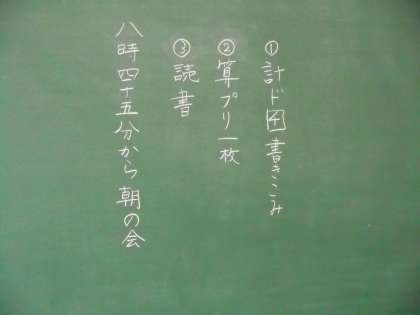 ①計ド42書きこみ
②算プリ一枚
③読書
八時四十五分から朝の会